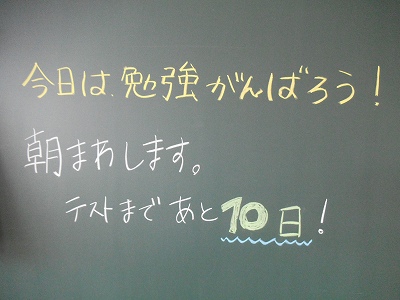 今日は、勉強がんばろう！
朝まわします。
テストまであと10日！